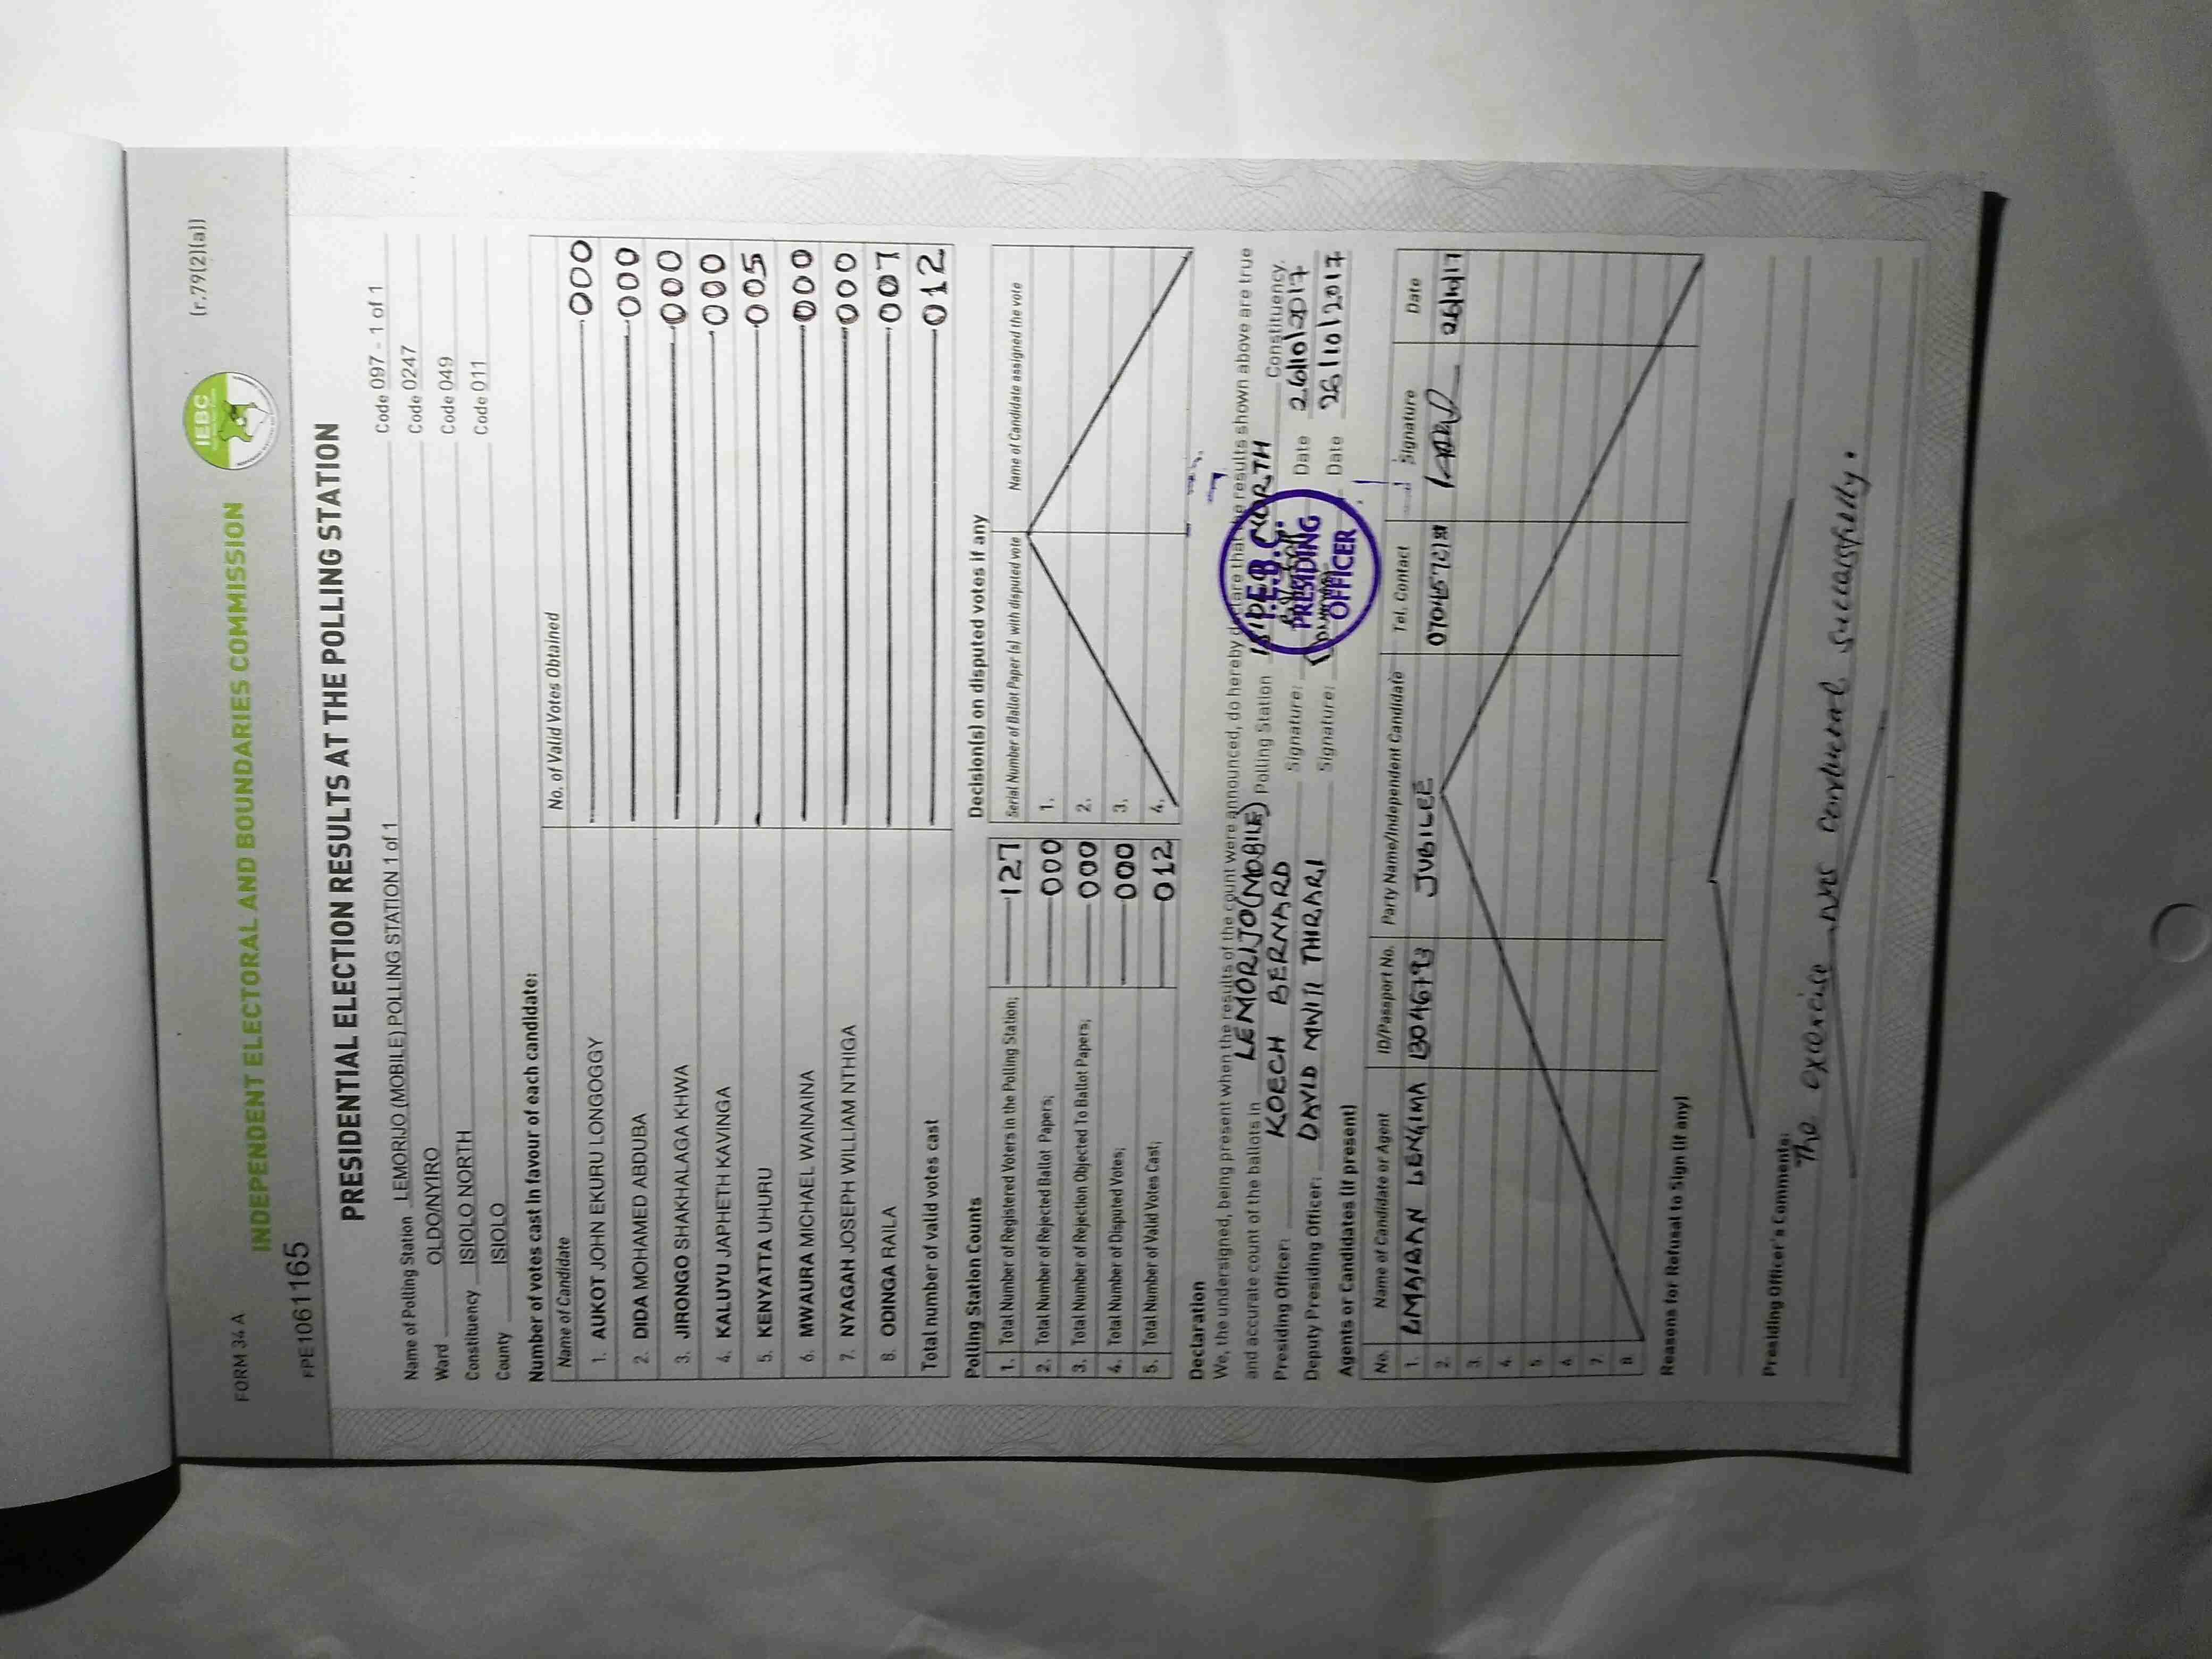 FORM 34 A
(r.79(2)(a))
IEBC
INDEPENDENT ELECTORAL AND BOUNDARIES COMMISSION
FPE1061165
PRESIDENTIAL ELECTION RESULTS AT THE POLLING STATION
Name of Polling Station LEMORIJO (MOBILE) POLLING STATION 1 of 1 Code 097 - 1 of 1
Ward OLDO/NYIRO Code 0247
Constituency ISIOLO NORTH Code 049
County ISIOLO Code 011
Number of votes cast in favour of each candidate:
Name of Candidate No. of Valid Votes Obtained
1. AUKOT JOHN EKURU LONGOGGY 000
2. DIDA MOHAMED ABDUBA 000
3. JIRONGO SHAKHALAGA KHWA 000
4. KALUYU JAPHETH KAVINGA 000
5. KENYATTA UHURU 005
6. MWAURA MICHAEL WAINAINA 000
7. NYAGAH JOSEPH WILLIAM NTHIGA 000
8. ODINGA RAILA 007
Total number of valid votes cast 012
Polling Station Counts
1. Total Number of Registered Voters in the Polling Station; 127
2. Total Number of Rejected Ballot Papers; 000
3. Total Number of Rejection Objected To Ballot Papers; 000
4. Total Number of Disputed Votes; 000
5. Total Number of Valid Votes Cast; 012
Decision(s) on disputed votes if any
Serial Number of Ballot Paper (s) with disputed vote Name of Candidate assigned the vote
1.
2.
3.
4.
Declaration
We, the undersigned, being present when the results of the count were announced, do hereby declare that the results shown above are true
and accurate count of the ballots in LEMORIJO (MOBILE) Polling Station NORTH Constituency.
Presiding Officer: KOECH BERNARD Signature: Date 26/10/2017
Deputy Presiding Officer: DAVID MWITI Signature: Date 26/10/2017
I.E.B.C.
PRESIDING
OFFICER
Agents or Candidates (if present)
No. Name of Candidate or Agent ID/Passport No. Party Name/Independent Candidate Tel. Contact Signature Date
1. JUBILEE 26/10/17
2.
3.
4.
5.
6.
7.
8.
Reasons for Refusal to Sign (if any)
Presiding Officer's Comments:
The exercise was conducted successfully.